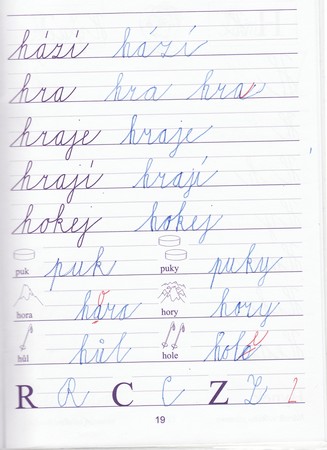 hází hází
hra hra hra
hraje hraje
hrají hrají
hokej hokej
puk puk puky puky
hora hora hory hory
hůl hůl hole hole
R R C C Z Z
19